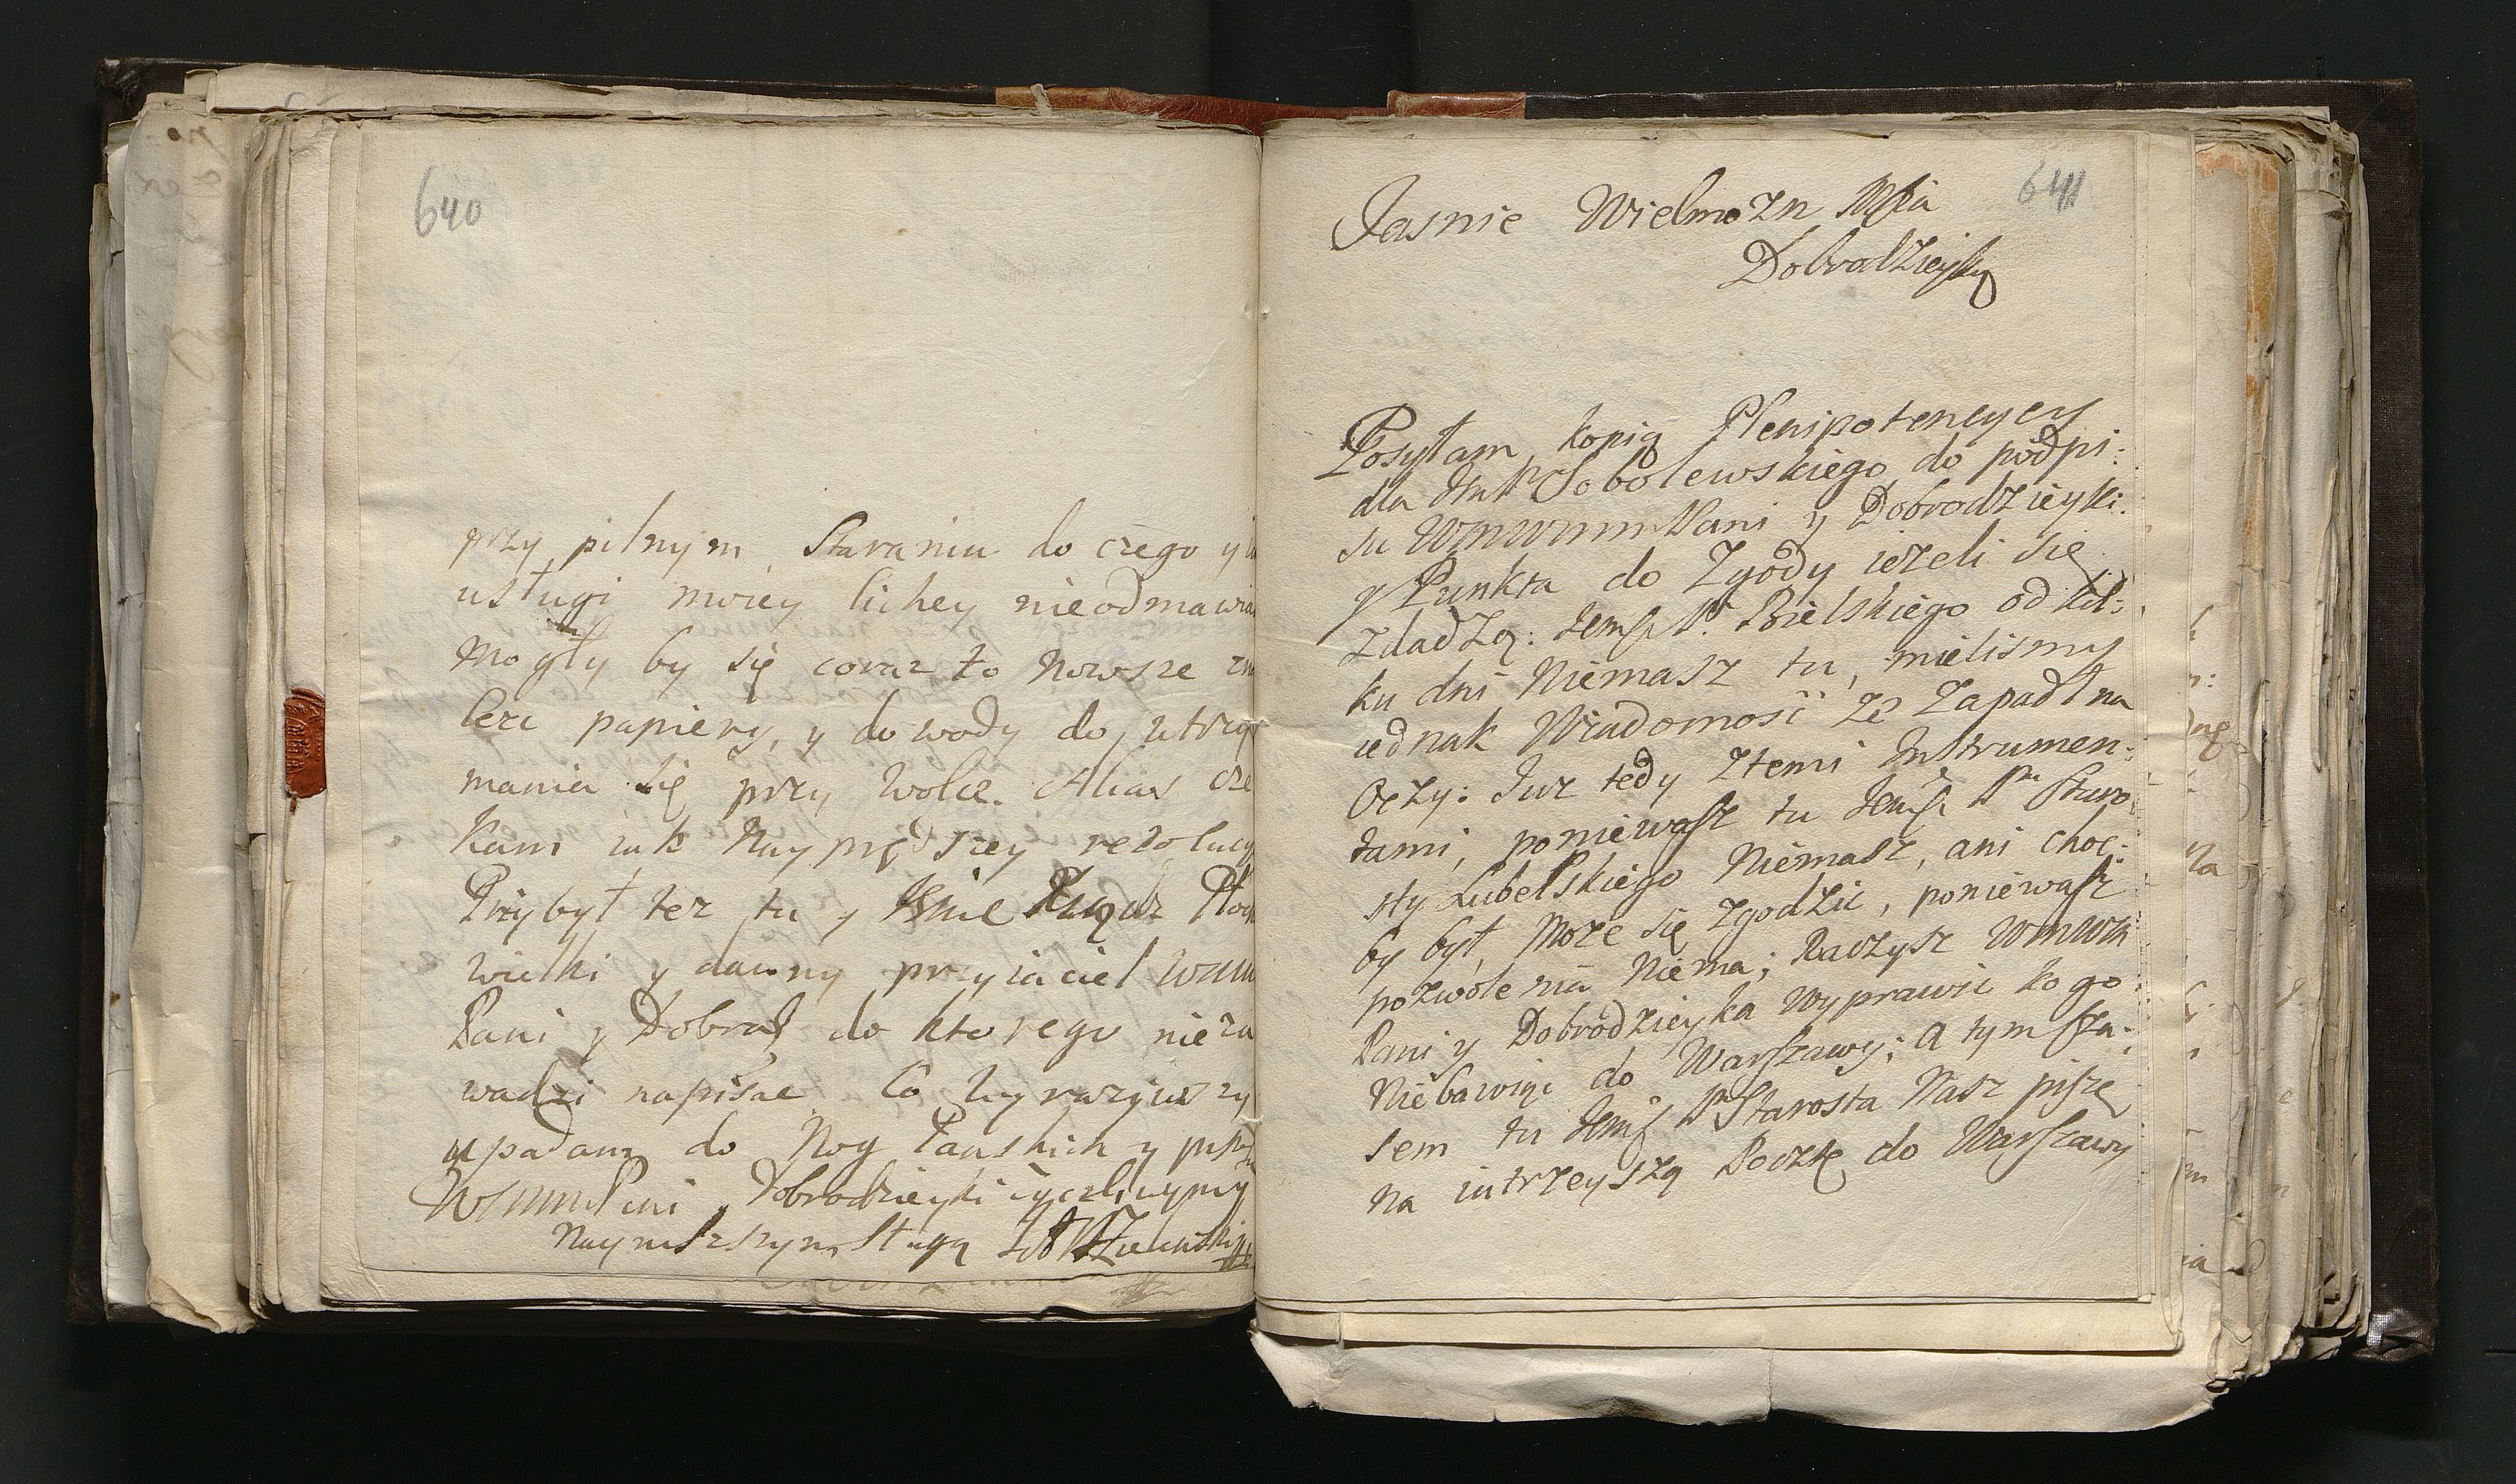 640
przy pilnym Staraniu do czego y
usługi moiey lichey nieodmawia
Mogły by się coraz to nowsze zn
leze papiery, y dowody do utrzy
mania się przy Wolce. Alias cze
kam iak Nayprędszey rezolucy
Przybył tez tu y Xiąże
wielki y dawny przyiaciel
Pani y Dobra do ktorego nieza
wadzi napisac. Co Wyraziwszy
upadam do Nog Panskich y
Dobrodzieyki zyczliwym y
Nayniższym Sługą
641
Jasnie Wielmozn Mścia
Dobrodzieyko
Posyłam kopią Plenipotencyey
dla JmP Sobolewskiego do podpi:
su Pani y Dobrodzieyki.
y Punkta do Zgody iezeli się
zdadzą: Jemsc P. Bielskiego od kil:
ku dni Niemasz tu, mielismy
iednak Wiadomość że Zapadł na
Oczy: Juz tedy Ztemi Instrumen:
tami, poniewasz tu Jemsc Pn Staro
sty Lubelskiego Niemasz, ani choc:
by był, Moze się zgodzic, poniewasz
pozwolenia Niema; Raczysz WMWM
Pani y Dobrodzieyka Wyprawic kogo
Niebawiąc do Warszawy; A tym cza:
sem tu Jemsc Pn Starosta Nasz pisze
na iutrzeyszą Pocztę do Warszawy